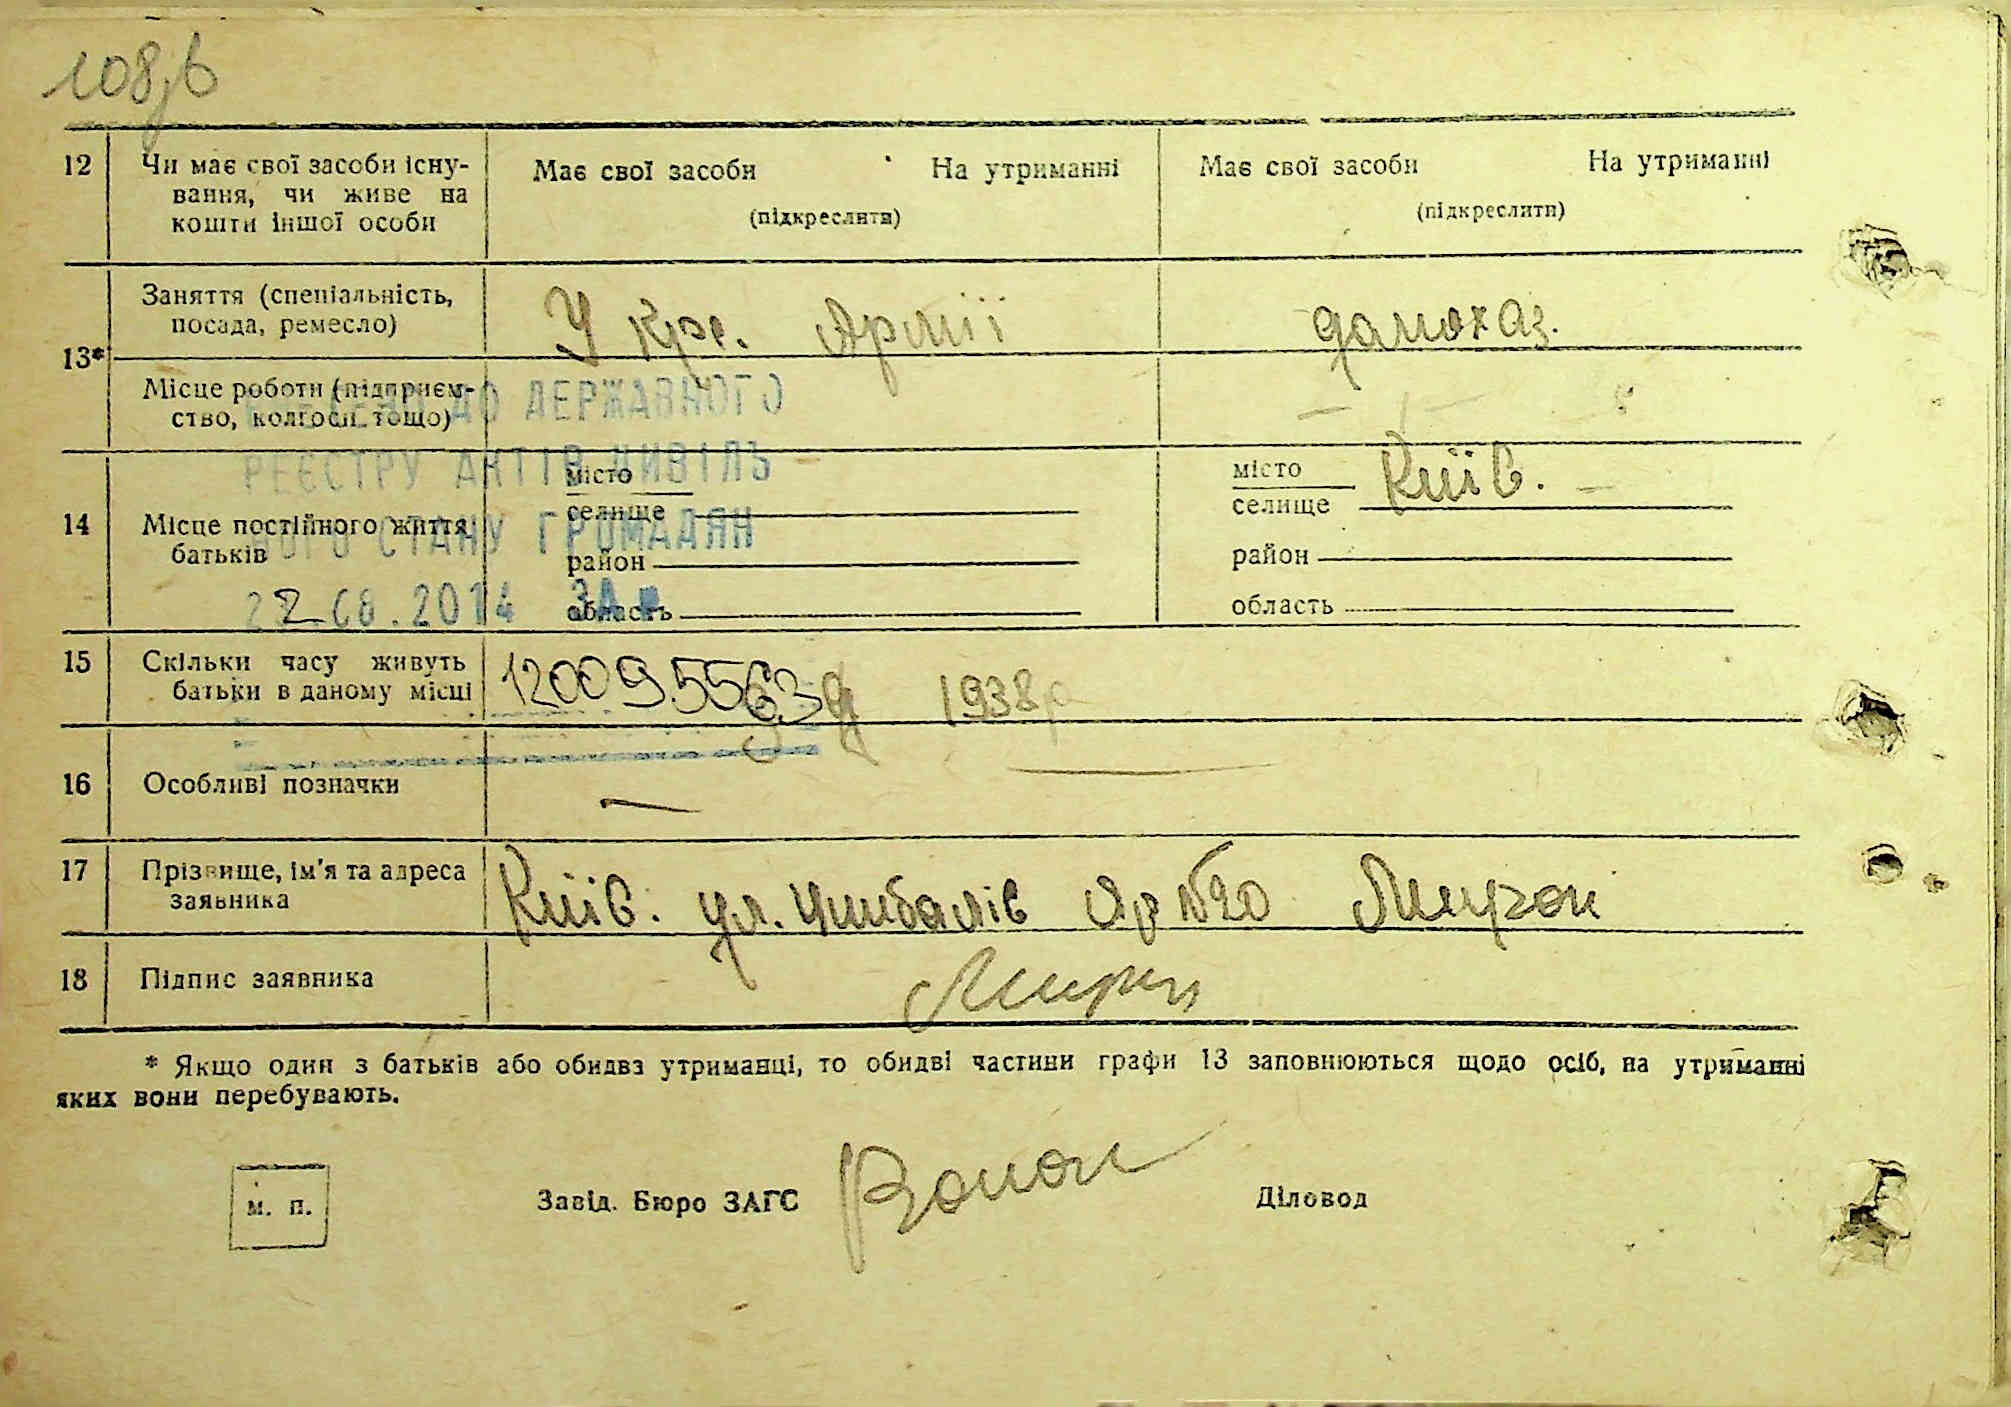 108
12 Чи має свої засоби існу-
вання, чи живе на
кошти іншої особи
Має свої засоби На утриманні
(підкреслити)
Має свої засоби На утриманні
(підкреслити)
13*
Заняття (спеціальність,
посада, ремесло)
У Кр. Армії
домохаз.
Місце роботи (підприєм-
ство, колгосп тощо)
ДО ДЕРЖАВНОГО
РЕЄСТРУ АКТІВ ЦИВІЛЬ
НОГО СТАНУ ГРОМАДЯН
22.08.2014
14 Місце постійного життя
батьків
місто
селище
район
область
місто Київ.
селище
район
область
15 Скільки часу живуть
батьки в даному місці
120095563 1938р
16 Особливі позначки —
17 Прізвище, ім'я та адреса
заявника
Київ. ул. Цимбалів Яр №20
18 Підпис заявника
* Якщо один з батьків або обидва утриманці, то обидві частини графи 13 заповнюються щодо осіб, на утриманні
яких вони перебувають.
м. п.
Завід. Бюро ЗАГС
Діловод